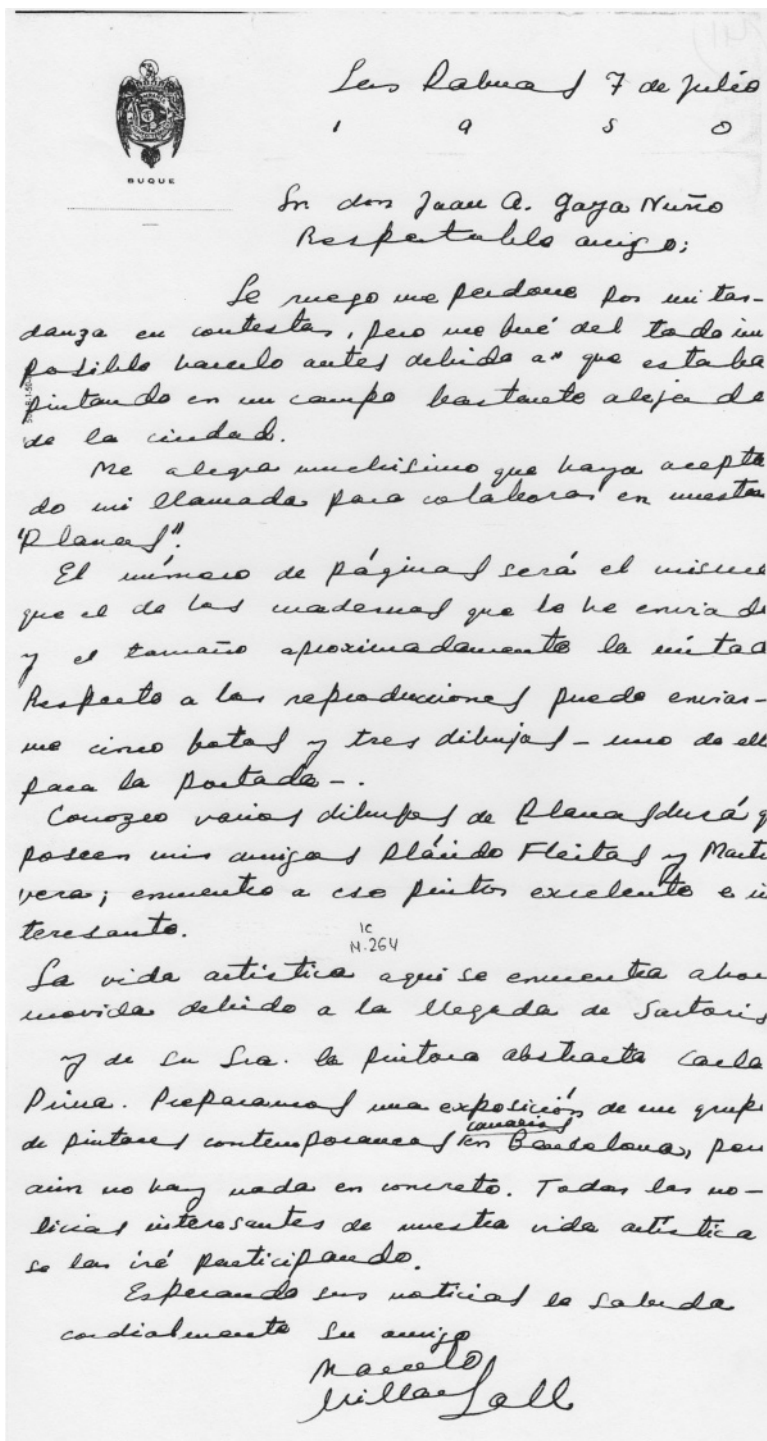 BUQUE
Las Palmas 7 de Julio
1 9 5 0
Sr don Juan A. Gaya Nuño
Respetable amigo:
Le ruego me perdone por mi tar-
danza en contestar, pero me fué del todo im
posible hacerlo antes debido a que estaba
pintando en un campo bastante alejado
de la ciudad.
Me alegra muchisimo que haya acepta
do mi llamada para colaborar en nuestros
"Planas".
El número de páginas será el mismo
que el de los cuadernos que le he enviado
y el tamaño aproximadamente la mitad
Respecto a las reproducciones puede enviar-
me cinco fotos y tres dibujos - uno de ell
para la portada -.
Conozco varios dibujos de Planasdurá q
poseen mis amigos Plácido Fleitas y Marti
vera; encuentro a ese pintor excelente e in
teresante.
IC
N.264
La vida artistica aqui se encuentra ahor
movida debido a la llegada de Sartoris
y de su Sra. la pintora abstracta Carla
Prina. Preparamos una exposición de un grup
canarios
de pintores contemporaneos en Barcelona, per
aún no hay nada en concreto. Todas las no-
ticias interesantes de nuestra vida artística
se las iré participando.
Esperando sus noticias le saluda
cordialmente su amigo
Manolo
Millares Sall